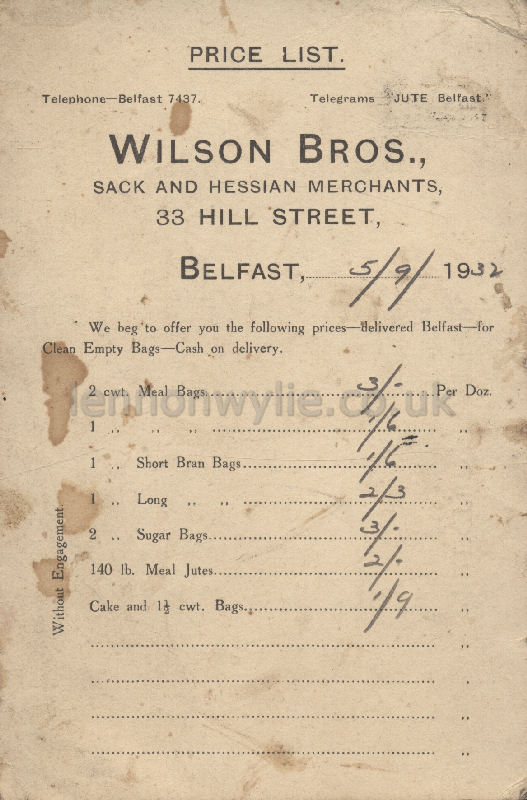 PRICE LIST.
Telephone—Belfast 7437. Telegrams "JUTE Belfast."
WILSON BROS.,
SACK AND HESSIAN MERCHANTS,
33 HILL STREET,
BELFAST, 5/9/ 1932
We beg to offer you the following prices—delivered Belfast—for
Clean Empty Bags—Cash on delivery.
lennonwylie.co.uk
2 cwt. Meal Bags 3/- Per Doz.
1 ,, ,, ,, 1/6 ,,
1 ,, Short Bran Bags 1/6 ,,
1 ,, Long ,, ,, 2/3 ,,
2 ,, Sugar Bags 3/- ,,
140 lb. Meal Jutes 2/- ,,
Cake and 1½ cwt. Bags 1/9 ,,
,,
,,
,,
,,
Without Engagement.